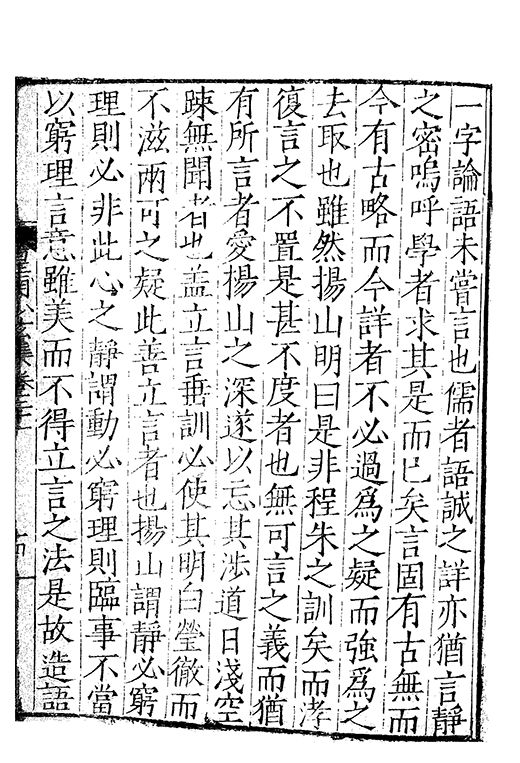 一字論語未嘗言也儒者語誠之詳亦猶言靜
之密嗚呼學者求其是而已矣言固有古無而
今有古略而今詳者不必過爲之疑而強爲之
去取也雖然揚山明曰是非程朱之訓矣而孝
復言之不置是甚不度者也無可言之義而猶
有所言者愛揚山之深遂以忘其涉道日淺空
踈無聞者也盖立言垂訓必使其明白瑩徹而
不滋兩可之疑此善立言者也揚山謂靜必窮
理則必非此心之靜謂動必窮理則臨事不當
以窮理言意雖美而不得立言之法是故造語